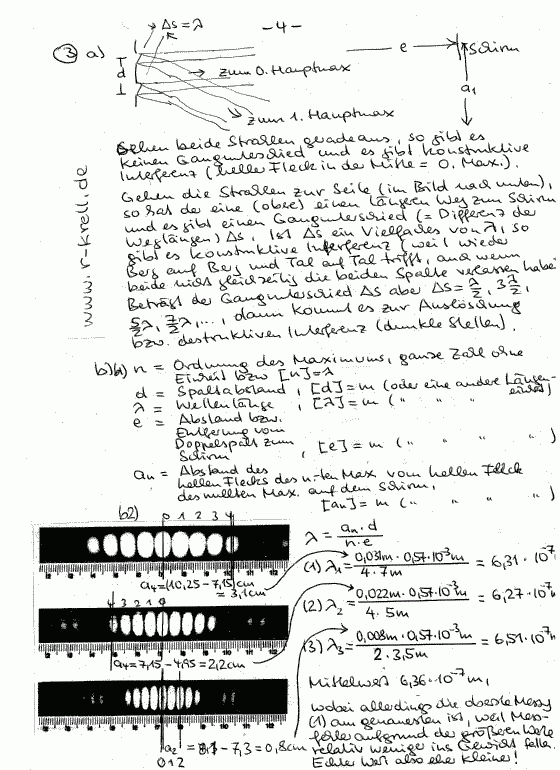 -4-
③ a)
Δs = λ
d
zum 0. Hauptmax
zum 1. Hauptmax
e
Schirm
a₁
www.r-krell.de
Gehen beide Strahlen geradeaus, so gibt es
keinen Gangunterschied und es gibt konstruktive
Interferenz (heller Fleck in der Mitte = 0. Max.).
Gehen die Strahlen zur Seite (im Bild nach unten),
so hat der eine (obere) einen längeren Weg zum Schirm
und es gibt einen Gangunterschied (= Differenz der
Weglängen) Δs. Ist Δs ein Vielfaches von λ, so
gibt es konstruktive Interferenz (weil wieder
Berg auf Berg und Tal auf Tal trifft, auch wenn
beide nicht gleichzeitig die beiden Spalte verlassen haben).
Beträgt der Gangunterschied Δs aber Δs = λ/2, 3λ/2,
5/2 λ, 7/2 λ, ..., dann kommt es zur Auslöschung
bzw. destruktiven Interferenz (dunkle Stellen).
b) b1) n = Ordnung des Maximums, ganze Zahl ohne
Einheit bzw. [n] = 1
d = Spaltabstand, [d] = m (oder eine andere Längen-
einheit)
λ = Wellenlänge, [λ] = m ( " " " )
e = Abstand bzw.
Entfernung vom
Doppelspalt zum
Schirm, [e] = m ( " " " " )
aₙ = Abstand des
hellen Flecks des n-ten Max. vom hellen Fleck
des nullten Max. auf dem Schirm,
[aₙ] = m ( " " " " )
b2) 0 1 2 3 4
λ = aₙ · d / n · e
a₄ = (10,25 - 7,15) cm
= 3,1 cm
(1) λ₁ = 0,031m · 0,57·10⁻³m / 4 · 7m = 6,31 · 10⁻⁷
4 3 2 1 0
(2) λ₂ = 0,022m · 0,57·10⁻³m / 4 · 5m = 6,27 · 10⁻⁷
a₄ = 7,15 - 4,95 = 2,2cm
(3) λ₃ = 0,008m · 0,57·10⁻³m / 2 · 3,5m = 6,51 · 10⁻⁷
a₂ = 8,1 - 7,3 = 0,8cm
0 1 2
Mittelwert 6,36 · 10⁻⁷ m,
wobei allerdings die oberste Messg
(1) am genauesten ist, weil Mess-
fehler aufgrund der größeren Werte
relativ weniger ins Gewicht fallen.
Echter Wert also eher kleiner!